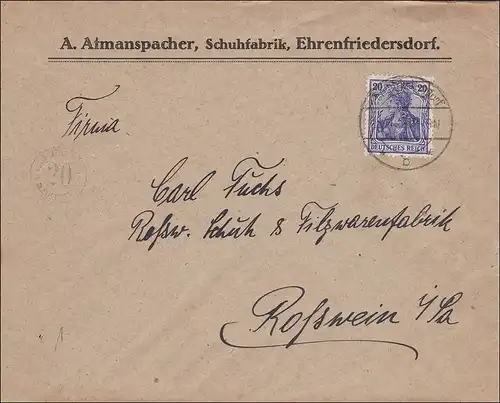 A. Atmanspacher, Schuhfabrik, Ehrenfriedersdorf.
20 20
DEUTSCHES REICH
Firma
20
Carl Fuchs
Roßw. Schuh & Filzwarenfabrik
Roßwein i/Sa